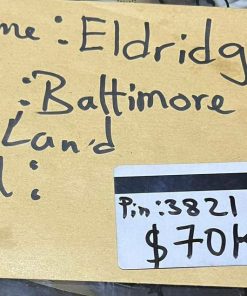 me : Eldridg
: Baltimore
Land
l :
Pin : 3821
$70K